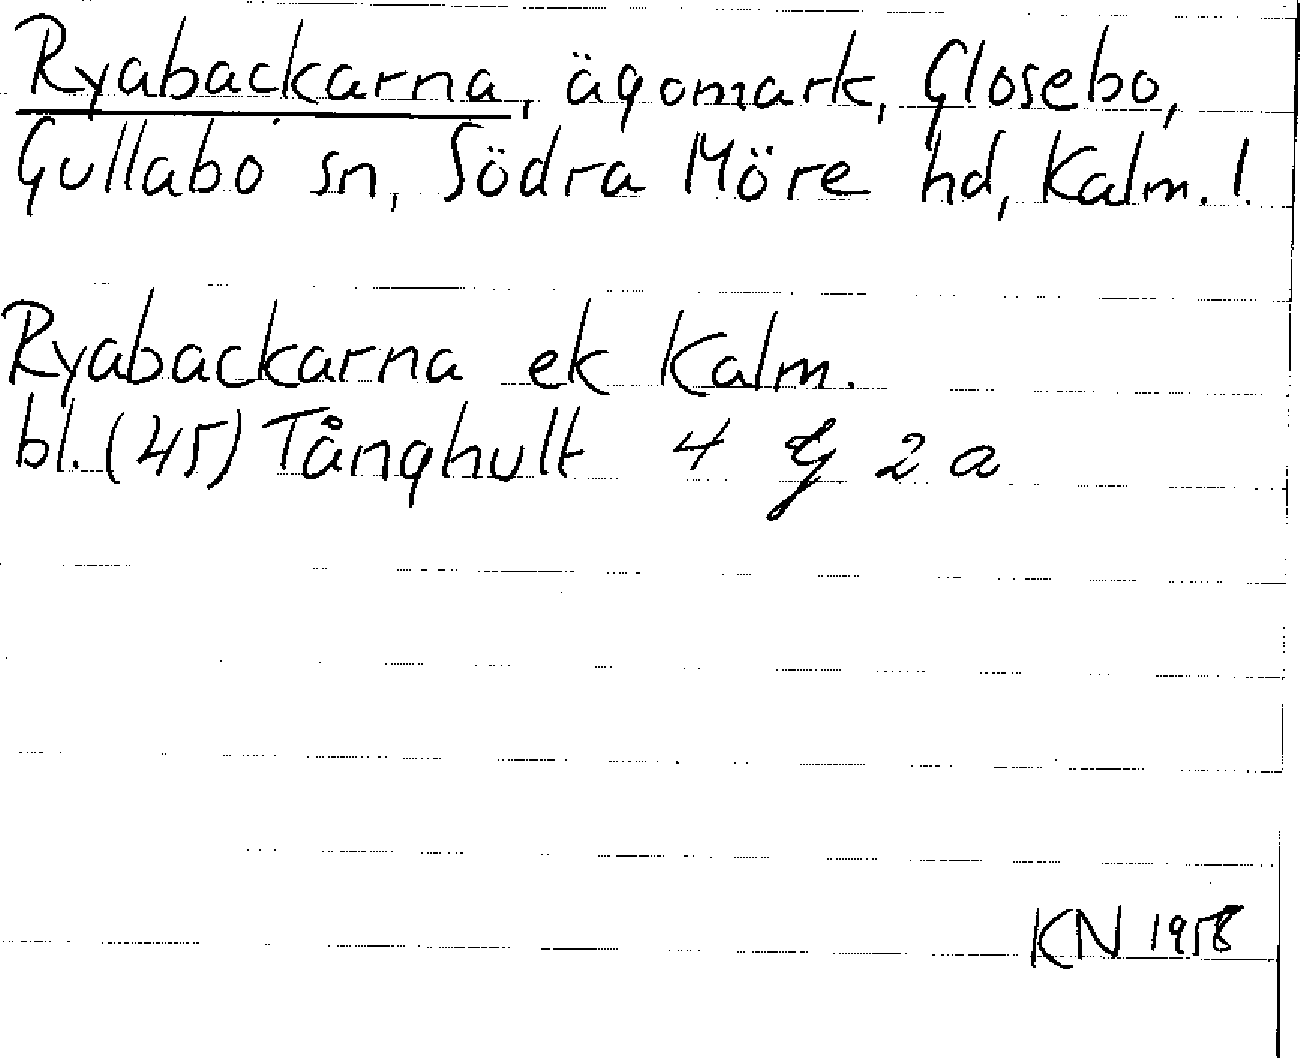 Ryabackarna, ägomark, Glosebo,
Gullabo sn, Södra Möre hd, Kalm. l.
Ryabackarna ek Kalm.
bl. (45) Tånghult 4 G 2 a
KN 1958